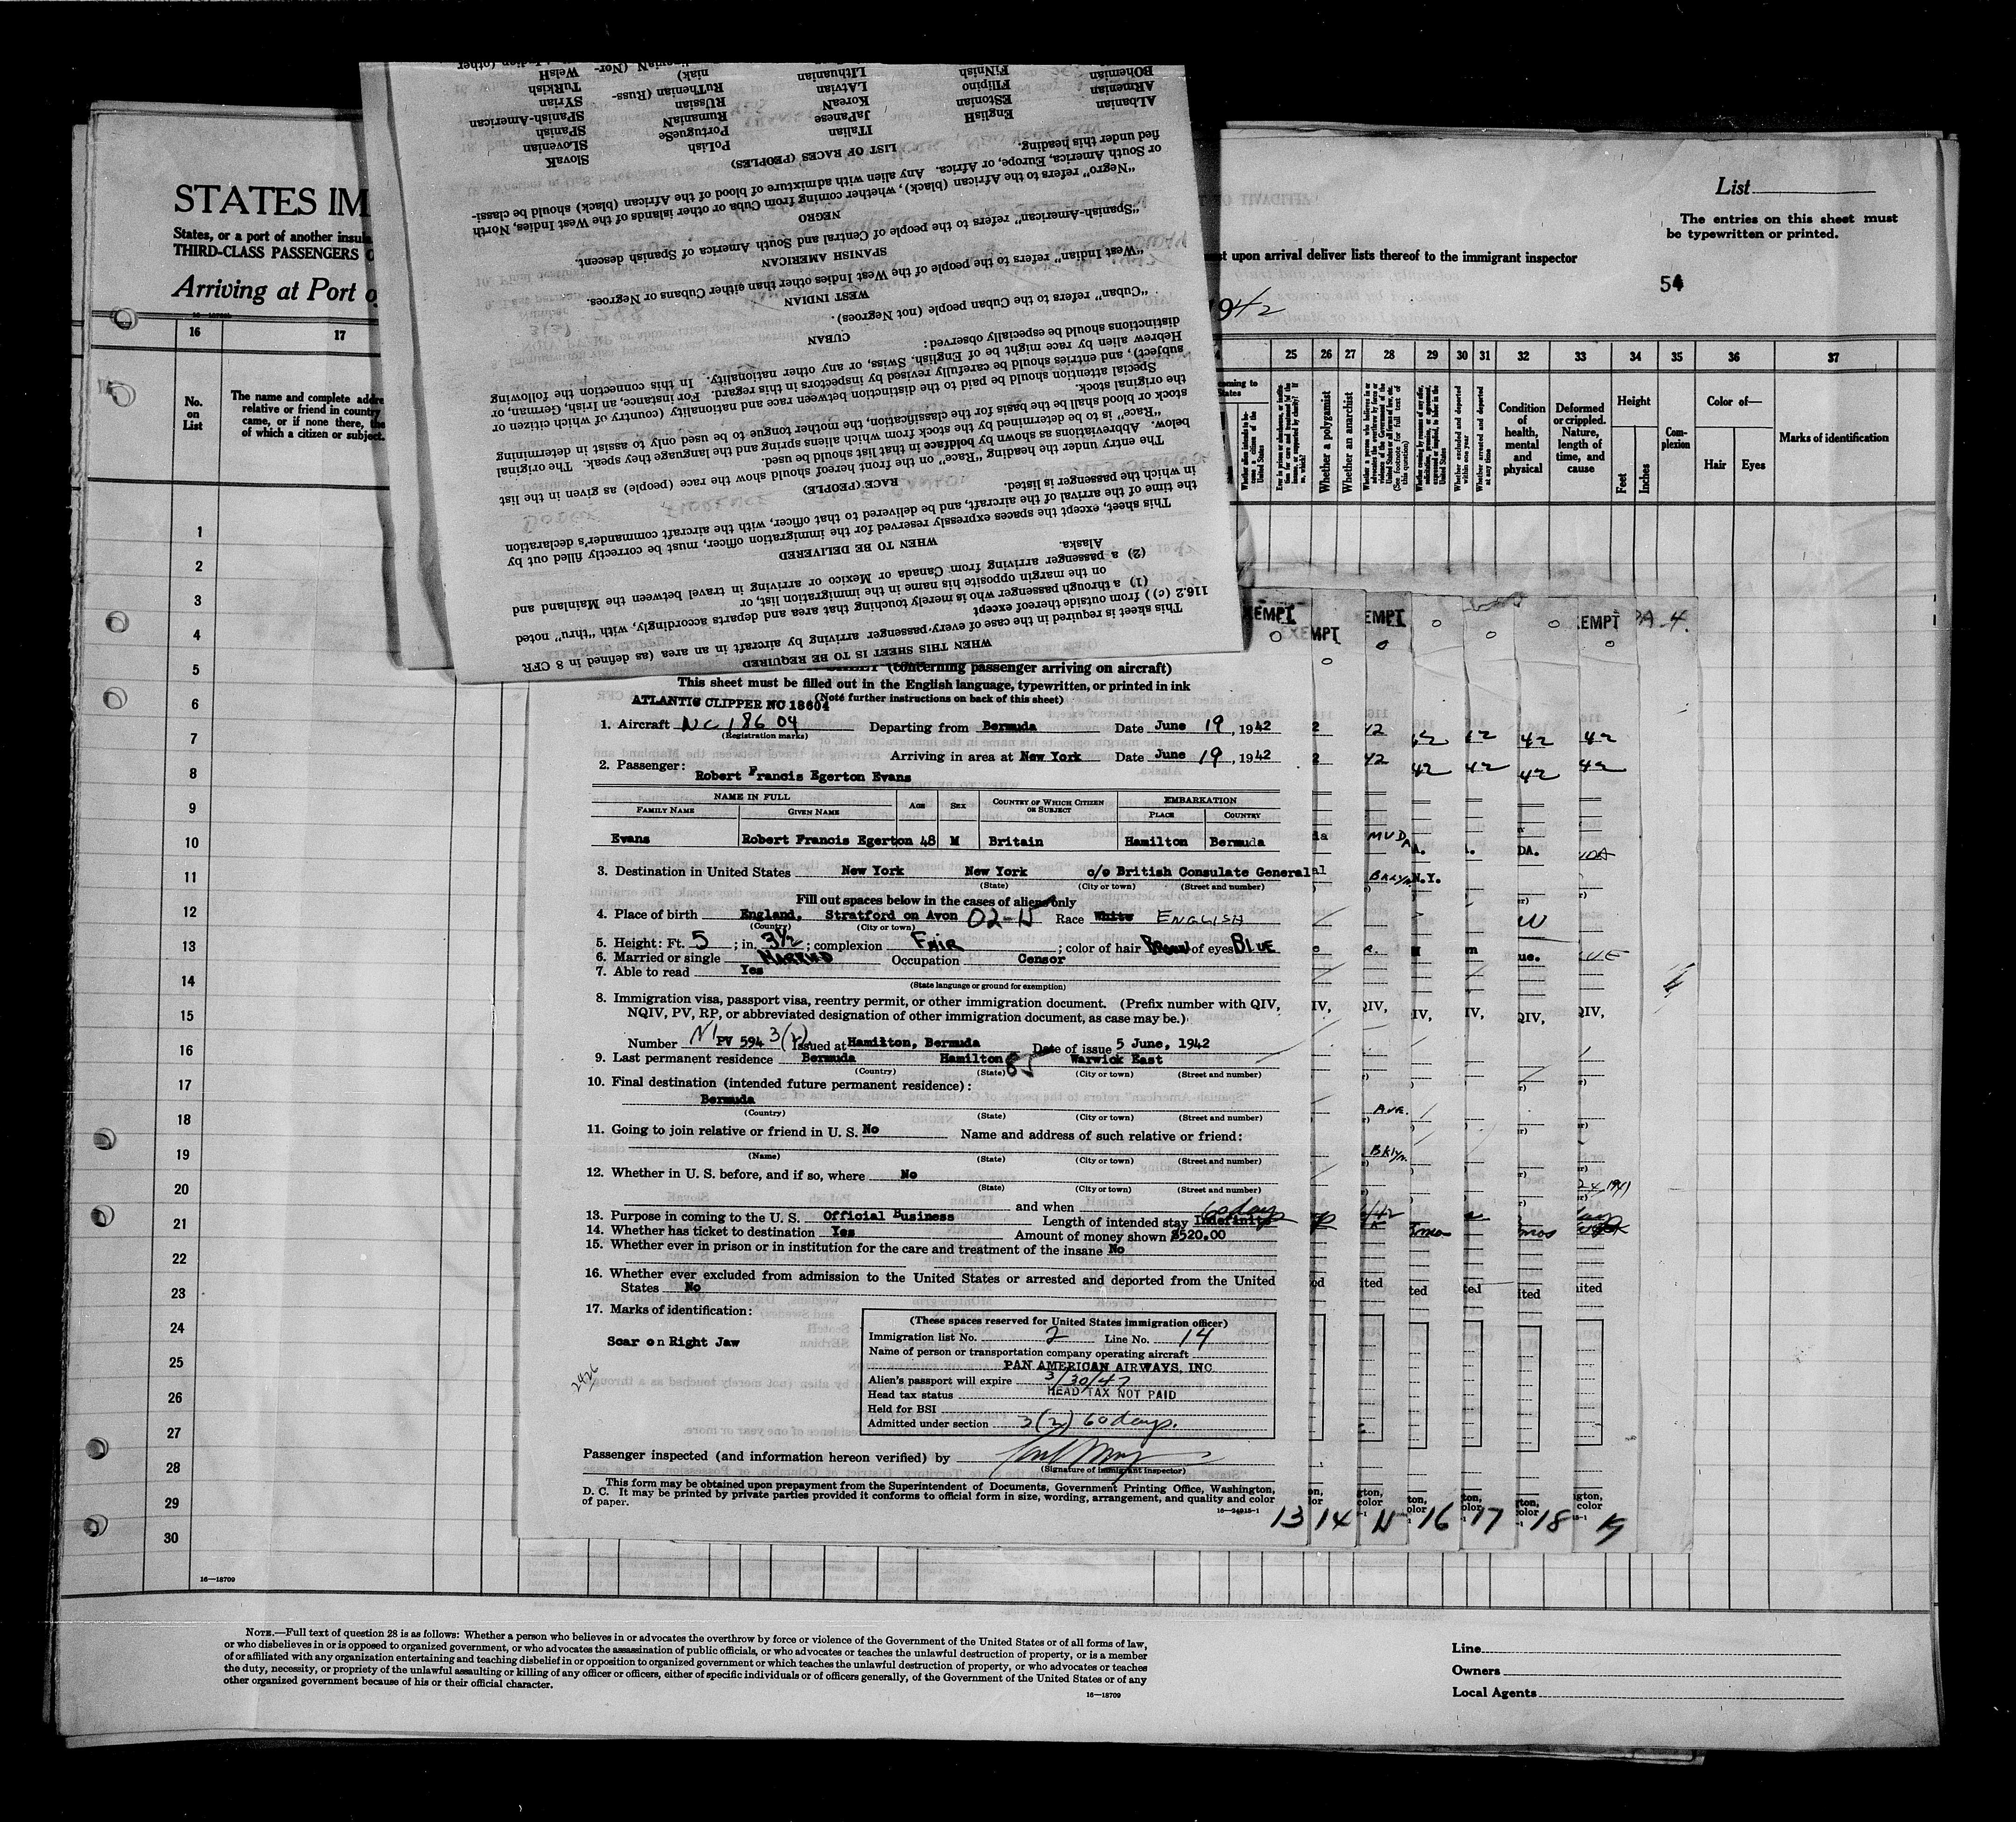 STATES IM
States, or a port of another insula
THIRD-CLASS PASSENGERS
Arriving at Port o
List
The entries on this sheet must
be typewritten or printed.
st upon arrival deliver lists thereof to the immigrant inspector
54
1942
16 17 25 26 27 28 29 30 31 32 33 34 35 36 37
No.
on
List
The name and complete addre
relative or friend in country
came, or if none there, the
of which a citizen or subject.
Whether a polygamist
Whether an anarchist
Condition
of
health,
mental
and
physical
Deformed
or crippled.
Nature,
length of
time, and
cause
Height
Feet
Inches
Com-
plexion
Color of—
Hair Eyes
Marks of identification
1
2
3
4
5
6
7
8
9
10
11
12
13
14
15
16
17
18
19
20
21
22
23
24
25
26
27
28
29
30
16—18709
WHEN THIS SHEET IS TO BE REQUIRED
This sheet is required in the case of every passenger arriving by aircraft in an area (as defined in 8 CFR
116.2 (c)) from outside thereof except
(1) a through passenger who is merely touching that area and departs accordingly, with "thru" noted
on the margin opposite his name in the immigration list, or
(2) a passenger arriving from Canada or Mexico or arriving in travel between the Mainland and
Alaska.
WHEN TO BE DELIVERED
This sheet, except the spaces expressly reserved for the immigration officer, must be correctly filled out by
the time of the arrival of the aircraft, and be delivered to that officer, with the aircraft commander's declaration
in which the passenger is listed.
RACE (PEOPLE)
The entry under the heading "Race" on the front hereof should show the race (people) as given in the list
below. Abbreviations as shown by boldface in that list should be used.
"Race" is to be determined by the stock from which aliens spring and the language they speak. The original
stock or blood shall be the basis for the classification, the mother tongue to be used only to assist in determining
the original stock.
Special attention should be paid to the distinction between race and nationality (country of which citizen or
subject), and entries should be carefully revised by inspectors in this regard. For instance, an Irish, German, or
Hebrew alien by race might be of English, Swiss, or any other nationality. In this connection the following
distinctions should be especially observed:
CUBAN
"Cuban" refers to the Cuban people (not Negroes).
WEST INDIAN
"West Indian" refers to the people of the West Indies other than either Cubans or Negroes.
SPANISH AMERICAN
"Spanish-American" refers to the people of Central and South America of Spanish descent.
NEGRO
"Negro" refers to the African (black), whether coming from Cuba or other islands of the West Indies, North
or South America, Europe, or Africa. Any alien with admixture of blood of the African (black) should be classi-
fied under this heading.
LIST OF RACES (PEOPLES)
ALbanian EngliSH ITalian PoLish SlovaK
ARmenian EStonian JaPanese PortugueSe SLovenian
BOhemian FIlipino KoreaN RumaniaN SPanish
FiNnish LAtvian RUssian SPanish-American
LIthuanian RuThenian (Russ- SYrian
niak) TuRkish
WelsH
(concerning passenger arriving on aircraft)
This sheet must be filled out in the English language, typewritten, or printed in ink
(Note further instructions on back of this sheet)
ATLANTIC CLIPPER NC 18604
1. Aircraft NC 18604 Departing from Bermuda Date June 19, 1942
(Registration marks)
Arriving in area at New York Date June 19, 1942
2. Passenger: Robert Francis Egerton Evans
NAME IN FULL AGE SEX COUNTRY OF WHICH CITIZEN OR SUBJECT EMBARKATION
FAMILY NAME GIVEN NAME PLACE COUNTRY
Evans Robert Francis Egerton 48 M Britain Hamilton Bermuda
3. Destination in United States New York New York c/o British Consulate General
(State) (City or town) (Street and number)
Fill out spaces below in the cases of aliens only
4. Place of birth England, Stratford on Avon 02-15 Race White ENGLISH
(Country) (City or town)
5. Height: Ft. 5; in. 3½; complexion FAIR; color of hair BROWN of eyes BLUE
6. Married or single MARRIED Occupation Censor
7. Able to read Yes
(State language or ground for exemption)
8. Immigration visa, passport visa, reentry permit, or other immigration document. (Prefix number with QIV,
NQIV, PV, RP, or abbreviated designation of other immigration document, as case may be.)
Number PV 594 3(2) Issued at Hamilton, Bermuda Date of issue 5 June, 1942
9. Last permanent residence Bermuda Hamilton 85 Warwick East
(Country) (State) (City or town) (Street and number)
10. Final destination (intended future permanent residence):
Bermuda
(Country) (State) (City or town) (Street and number)
11. Going to join relative or friend in U. S. No Name and address of such relative or friend:
(Name) (State) (City or town) (Street and number)
12. Whether in U. S. before, and if so, where No
(State) (City or town) (Street and number)
and when
13. Purpose in coming to the U. S. Official Business Length of intended stay Indefinite 60 days
14. Whether has ticket to destination Yes Amount of money shown $520.00
15. Whether ever in prison or in institution for the care and treatment of the insane No
16. Whether ever excluded from admission to the United States or arrested and deported from the United
States No
17. Marks of identification:
Scar on Right Jaw
2426
(These spaces reserved for United States immigration officer)
Immigration list No. 2 Line No. 14
Name of person or transportation company operating aircraft
PAN AMERICAN AIRWAYS, INC
Alien's passport will expire 3/30/47
Head tax status HEAD TAX NOT PAID
Held for BSI
Admitted under section 3(2) 60 days.
Passenger inspected (and information hereon verified) by
(Signature of immigrant inspector)
This form may be obtained upon prepayment from the Superintendent of Documents, Government Printing Office, Washington,
D. C. It may be printed by private parties provided it conforms to official form in size, wording, arrangement, and quality and color
of paper.
16—24915-1
13 14 16 17 18
EMPT EMPT EMPT EMPT
NOTE.—Full text of question 28 is as follows: Whether a person who believes in or advocates the overthrow by force or violence of the Government of the United States or of all forms of law,
or who disbelieves in or is opposed to organized government, or who advocates the assassination of public officials, or who advocates or teaches the unlawful destruction of property, or is a member
of or affiliated with any organization entertaining and teaching disbelief in or opposition to organized government or which teaches the unlawful destruction of property, or who advocates or teaches
the duty, necessity, or propriety of the unlawful assaulting or killing of any officer or officers, either of specific individuals or of officers generally, of the Government of the United States or of any
other organized government because of his or their official character.
16—18709
Line
Owners
Local Agents